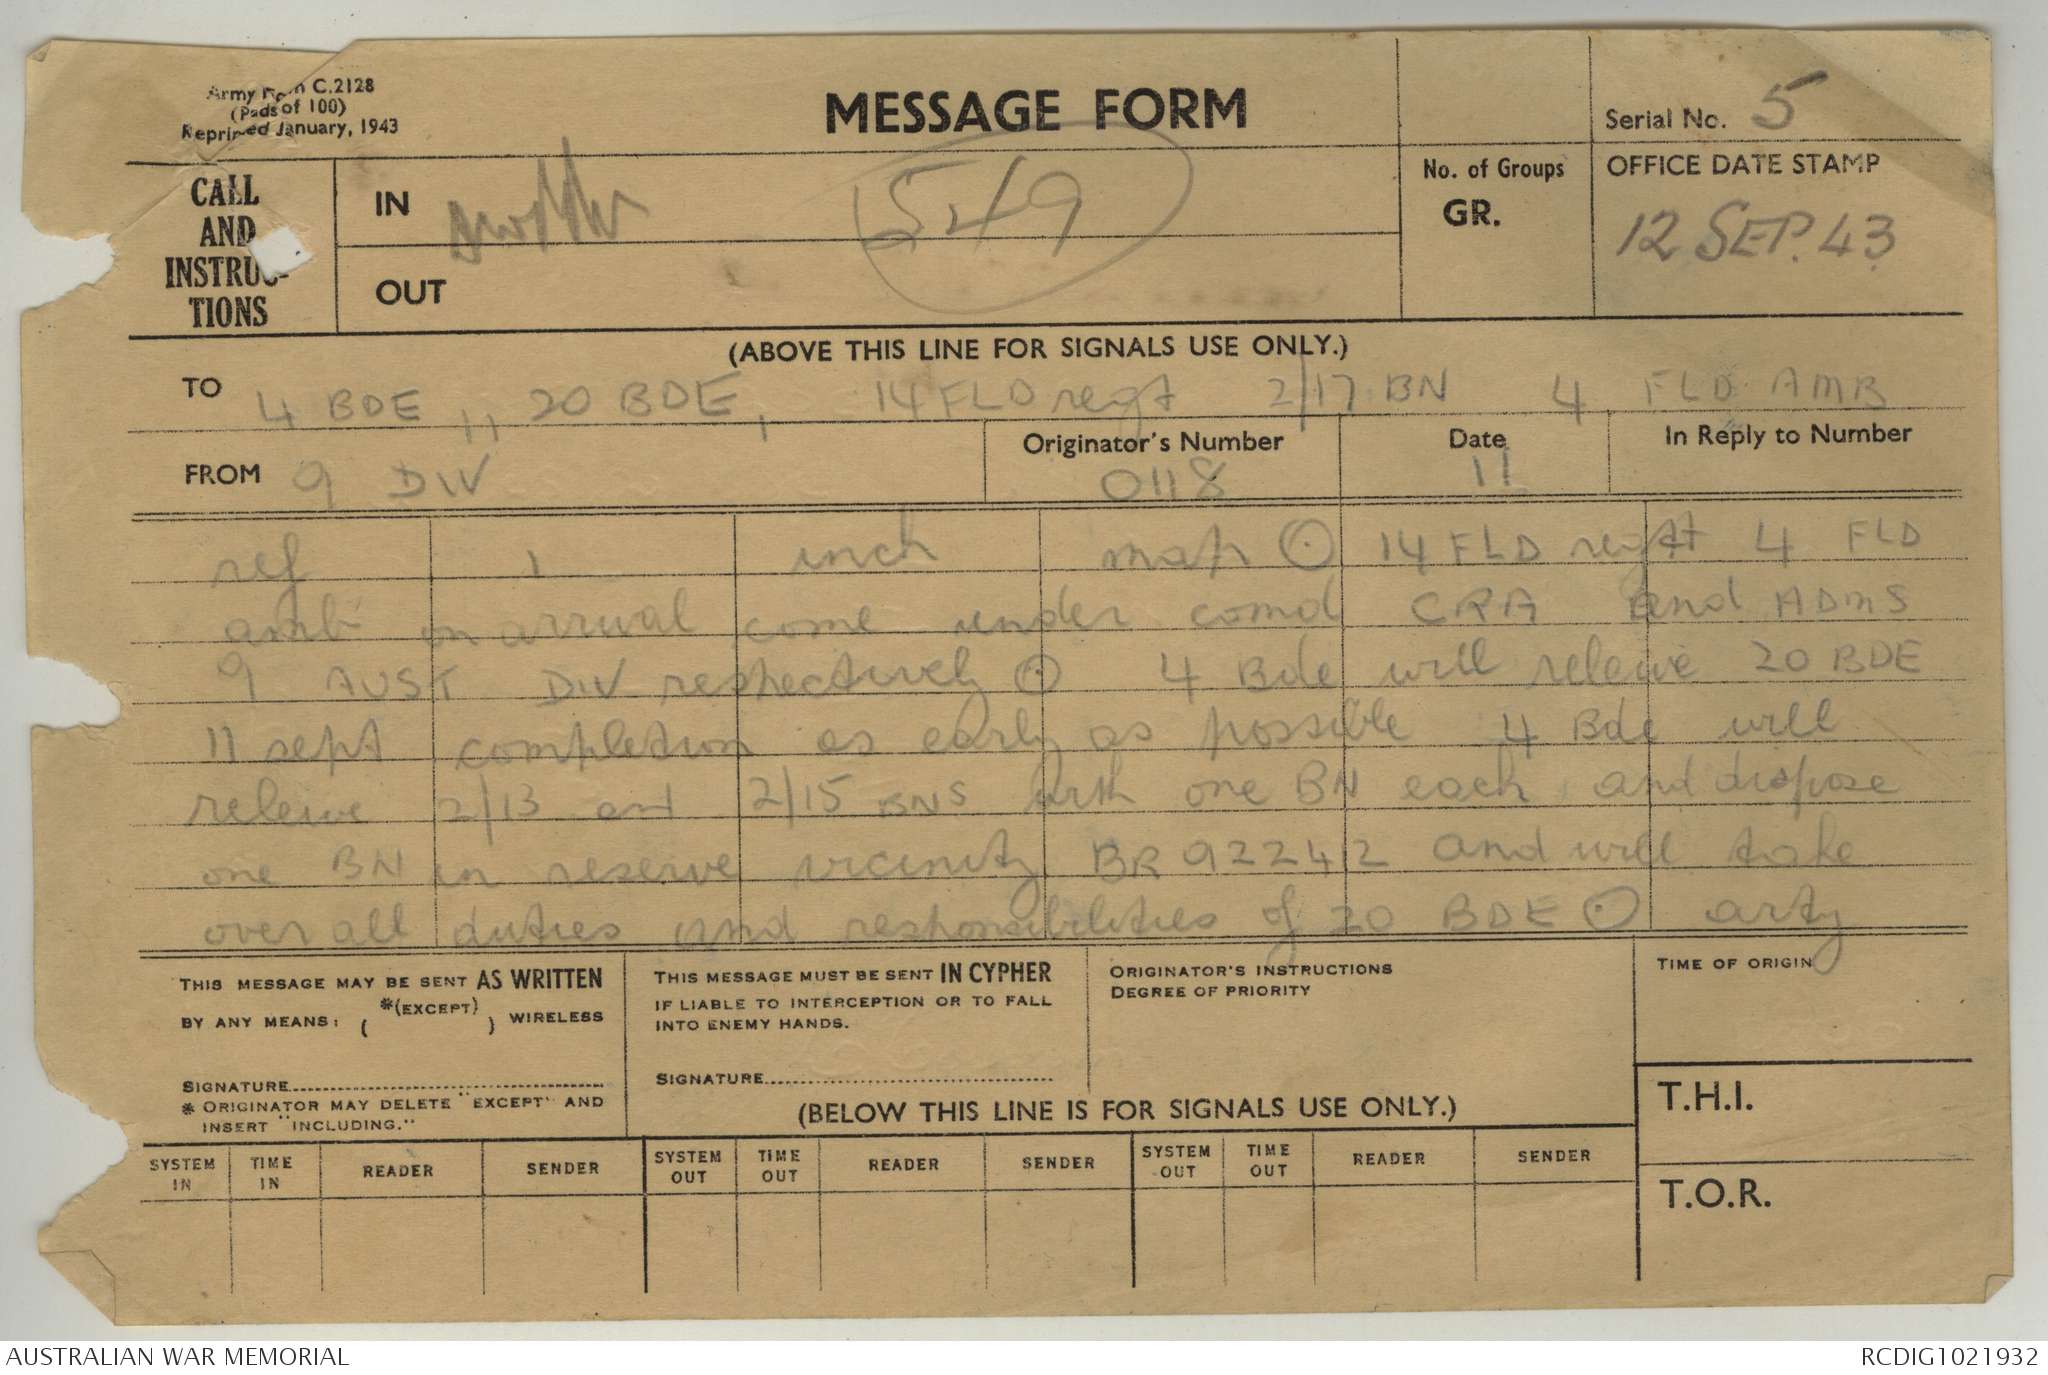 Army Form C.2128
(Pads of 100)
Reprinted January, 1943
MESSAGE FORM
Serial No. 5
CALL AND INSTRUC-TIONS
IN
549
No. of Groups
GR.
OFFICE DATE STAMP
12 SEP. 43
OUT
(ABOVE THIS LINE FOR SIGNALS USE ONLY.)
TO 4 BDE, 20 BDE, 14 FLD regt 2/17 BN 4 FLD AMB
FROM 9 DIV
Originator's Number 0118
Date 11
In Reply to Number
ref 1 inch map ⊙ 14 FLD regt 4 FLD
amb on arrival come under comd CRA and ADMS
9 AUST DIV respectively ⊙ 4 Bde will releive 20 BDE
11 sept completion as early as possible 4 Bde will
releive 2/13 and 2/15 BNS with one BN each and dispose
one BN in reserve vicinity BR 922412 and will take
over all duties and responsibilities of 20 BDE ⊙ arty
THIS MESSAGE MAY BE SENT AS WRITTEN
BY ANY MEANS: ( *(EXCEPT) ) WIRELESS
SIGNATURE
* ORIGINATOR MAY DELETE "EXCEPT" AND
INSERT "INCLUDING."
THIS MESSAGE MUST BE SENT IN CYPHER
IF LIABLE TO INTERCEPTION OR TO FALL
INTO ENEMY HANDS.
SIGNATURE
ORIGINATOR'S INSTRUCTIONS
DEGREE OF PRIORITY
TIME OF ORIGIN
(BELOW THIS LINE IS FOR SIGNALS USE ONLY.)
T.H.I.
SYSTEM IN TIME IN READER SENDER SYSTEM OUT TIME OUT READER SENDER SYSTEM OUT TIME OUT READER SENDER
T.O.R.
AUSTRALIAN WAR MEMORIAL
RCDIG1021932